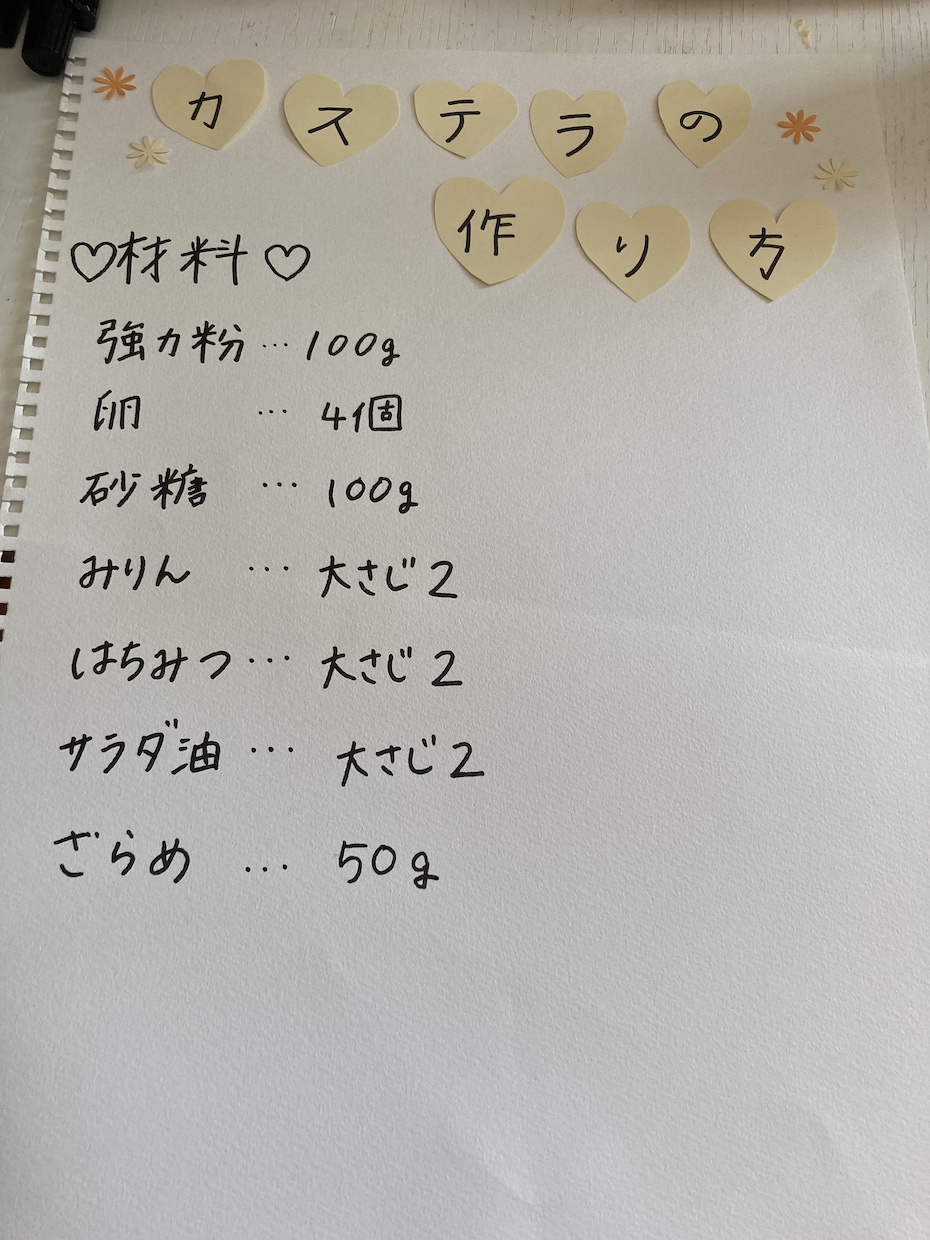 カステラの
作り方
♡材料♡
強力粉…100g
卵…4個
砂糖…100g
みりん…大さじ2
はちみつ…大さじ2
サラダ油…大さじ2
ざらめ…50g